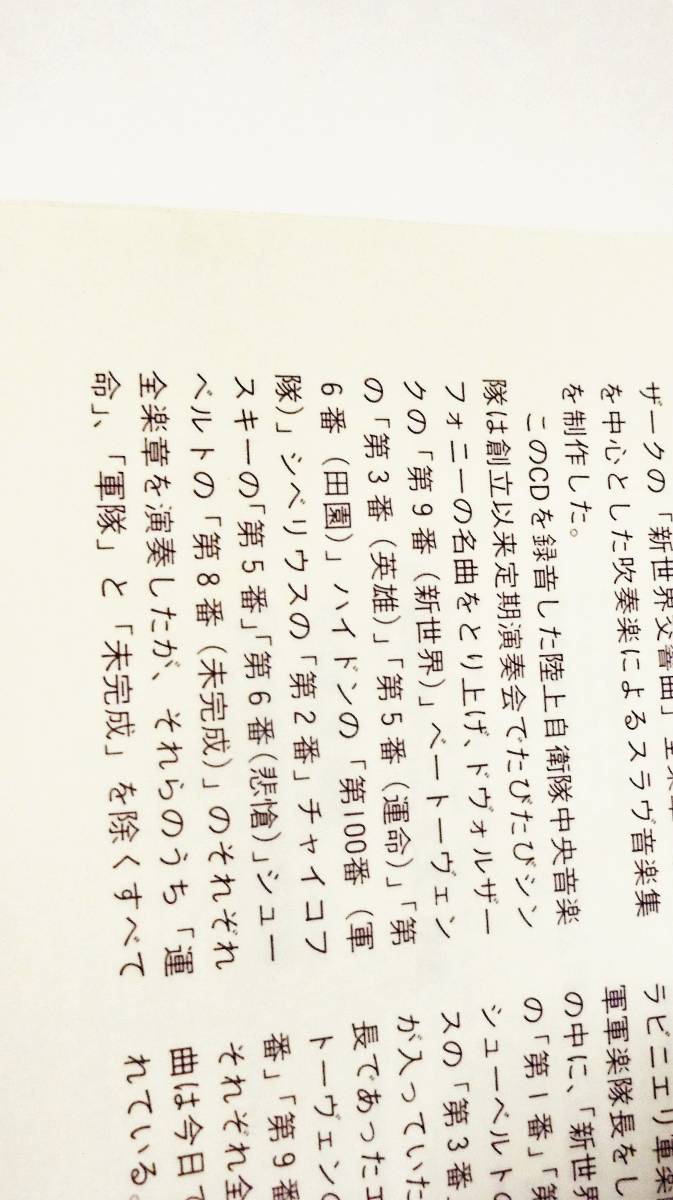 ザークの「新世界交響曲」全楽章
を中心とした吹奏楽によるスラヴ音楽集
を制作した。
このCDを録音した陸上自衛隊中央音楽
隊は創立以来定期演奏会でたびたびシン
フォニーの名曲をとり上げ、ドヴォルザー
クの「第9番（新世界）」ベートーヴェン
の「第3番（英雄）」「第5番（運命）」「第
6番（田園）」ハイドンの「第100番（軍
隊）」シベリウスの「第2番」チャイコフ
スキーの「第5番」「第6番（悲愴）」シュー
ベルトの「第8番（未完成）」のそれぞれ
全楽章を演奏したが、それらのうち「運
命」、「軍隊」と「未完成」を除くすべて
ラビニエリ軍楽
軍軍楽隊長をし
の中に、「新世界
の「第1番」「第
シューベルトの
スの「第3番
が入っていた
長であったエ
トーヴェンの
番」「第9番
それぞれ全
曲は今日で
れている。